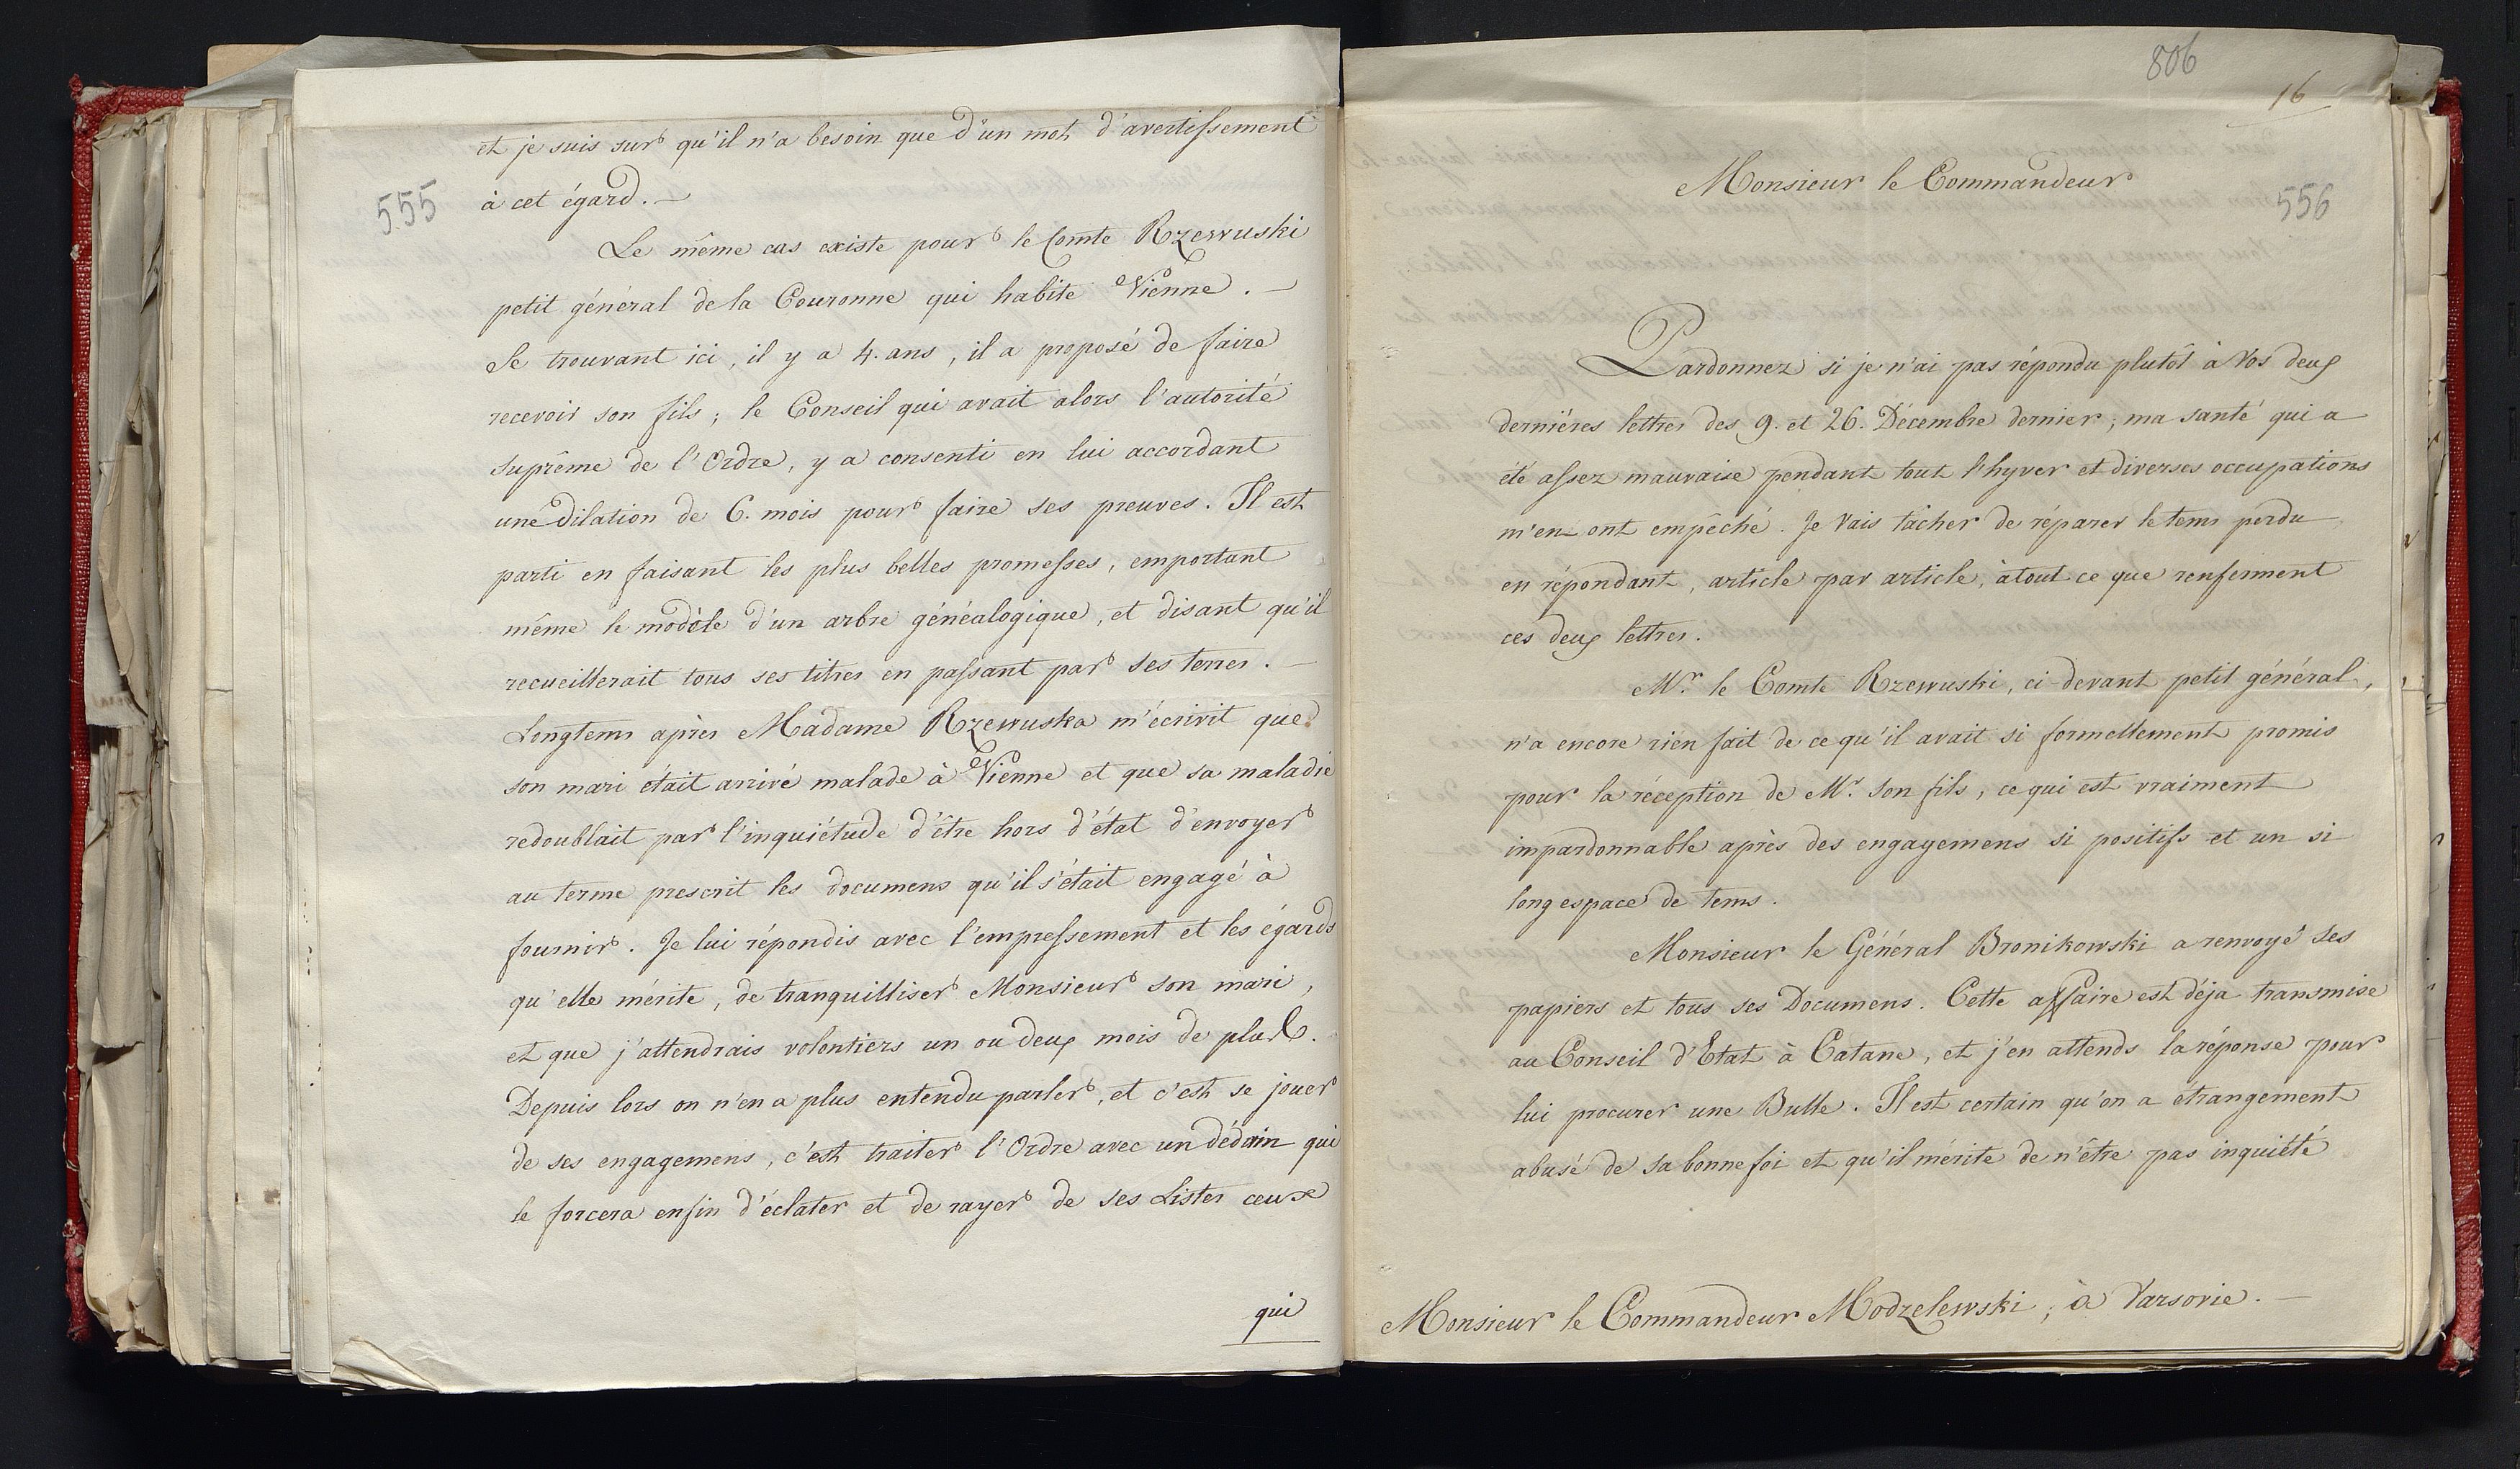 et je suis sur qu'il n'a besoin que d'un mot d'avertissement
555
à cet égard. —
Le même cas existe pour le Comte Rzewuski
petit général de la Couronne qui habite Vienne. —
Se trouvant ici, il y a 4. ans, il a proposé de faire
recevoir son fils; le Conseil qui avait alors l'autorité
suprême de l'Ordre, y a consenti en lui accordant
une dilation de 6. mois pour faire ses preuves. Il est
parti en faisant les plus belles promesses, emportant
même le modèle d'un arbre généalogique, et disant qu'il
recueillerait tous ses titres en passant par ses terres. —
Longtems après Madame Rzewuska m'écrivit que
son mari était arrivé malade à Vienne et que sa maladie
redoublait par l'inquiétude d'être hors d'état d'envoyer
au terme prescrit les documens qu'il s'était engagé à
fournir. Je lui répondis avec l'empressement et les égards
qu'elle mérite, de tranquilliser Monsieur son mari,
et que j'attendrais volontiers un ou deux mois de plus.
Depuis lors on n'en a plus entendu parler, et c'est se jouer
de ses engagemens, c'est traiter l'Ordre avec un dédain qui
le forcera enfin d'éclater et de rayer de ses Listes ceux
qui
806
16
Monsieur le Commandeur
556
Pardonnez si je n'ai pas répondu plutôt à Vos deux
dernières lettres des 9. et 26. Décembre dernier; ma santé qui a
été assez mauvaise pendant tout l'hyver et diverses occupations
m'en ont empêché. Je Vais tâcher de réparer le tems perdu
en répondant, article par article, à tout ce que renferment
ces deux lettres.
Mr. le Comte Rzewuski, ci-devant petit général,
n'a encore rien fait de ce qu'il avait si formellement promis
pour la réception de Mr. Son fils, ce qui est vraiment
impardonnable après des engagemens si positifs et un si
long espace de tems.
Monsieur le Général Bronikowski a renvoyé Ses
papiers et tous ses Documens. Cette affaire est déja transmise
au Conseil d'Etat à Catane, et j'en attends la réponse pour
lui procurer une Bulle. Il est certain qu'on a étrangement
abusé de sa bonne foi et qu'il mérite de n'être pas inquiété
Monsieur le Commandeur Modzelewski, à Varsovie. —